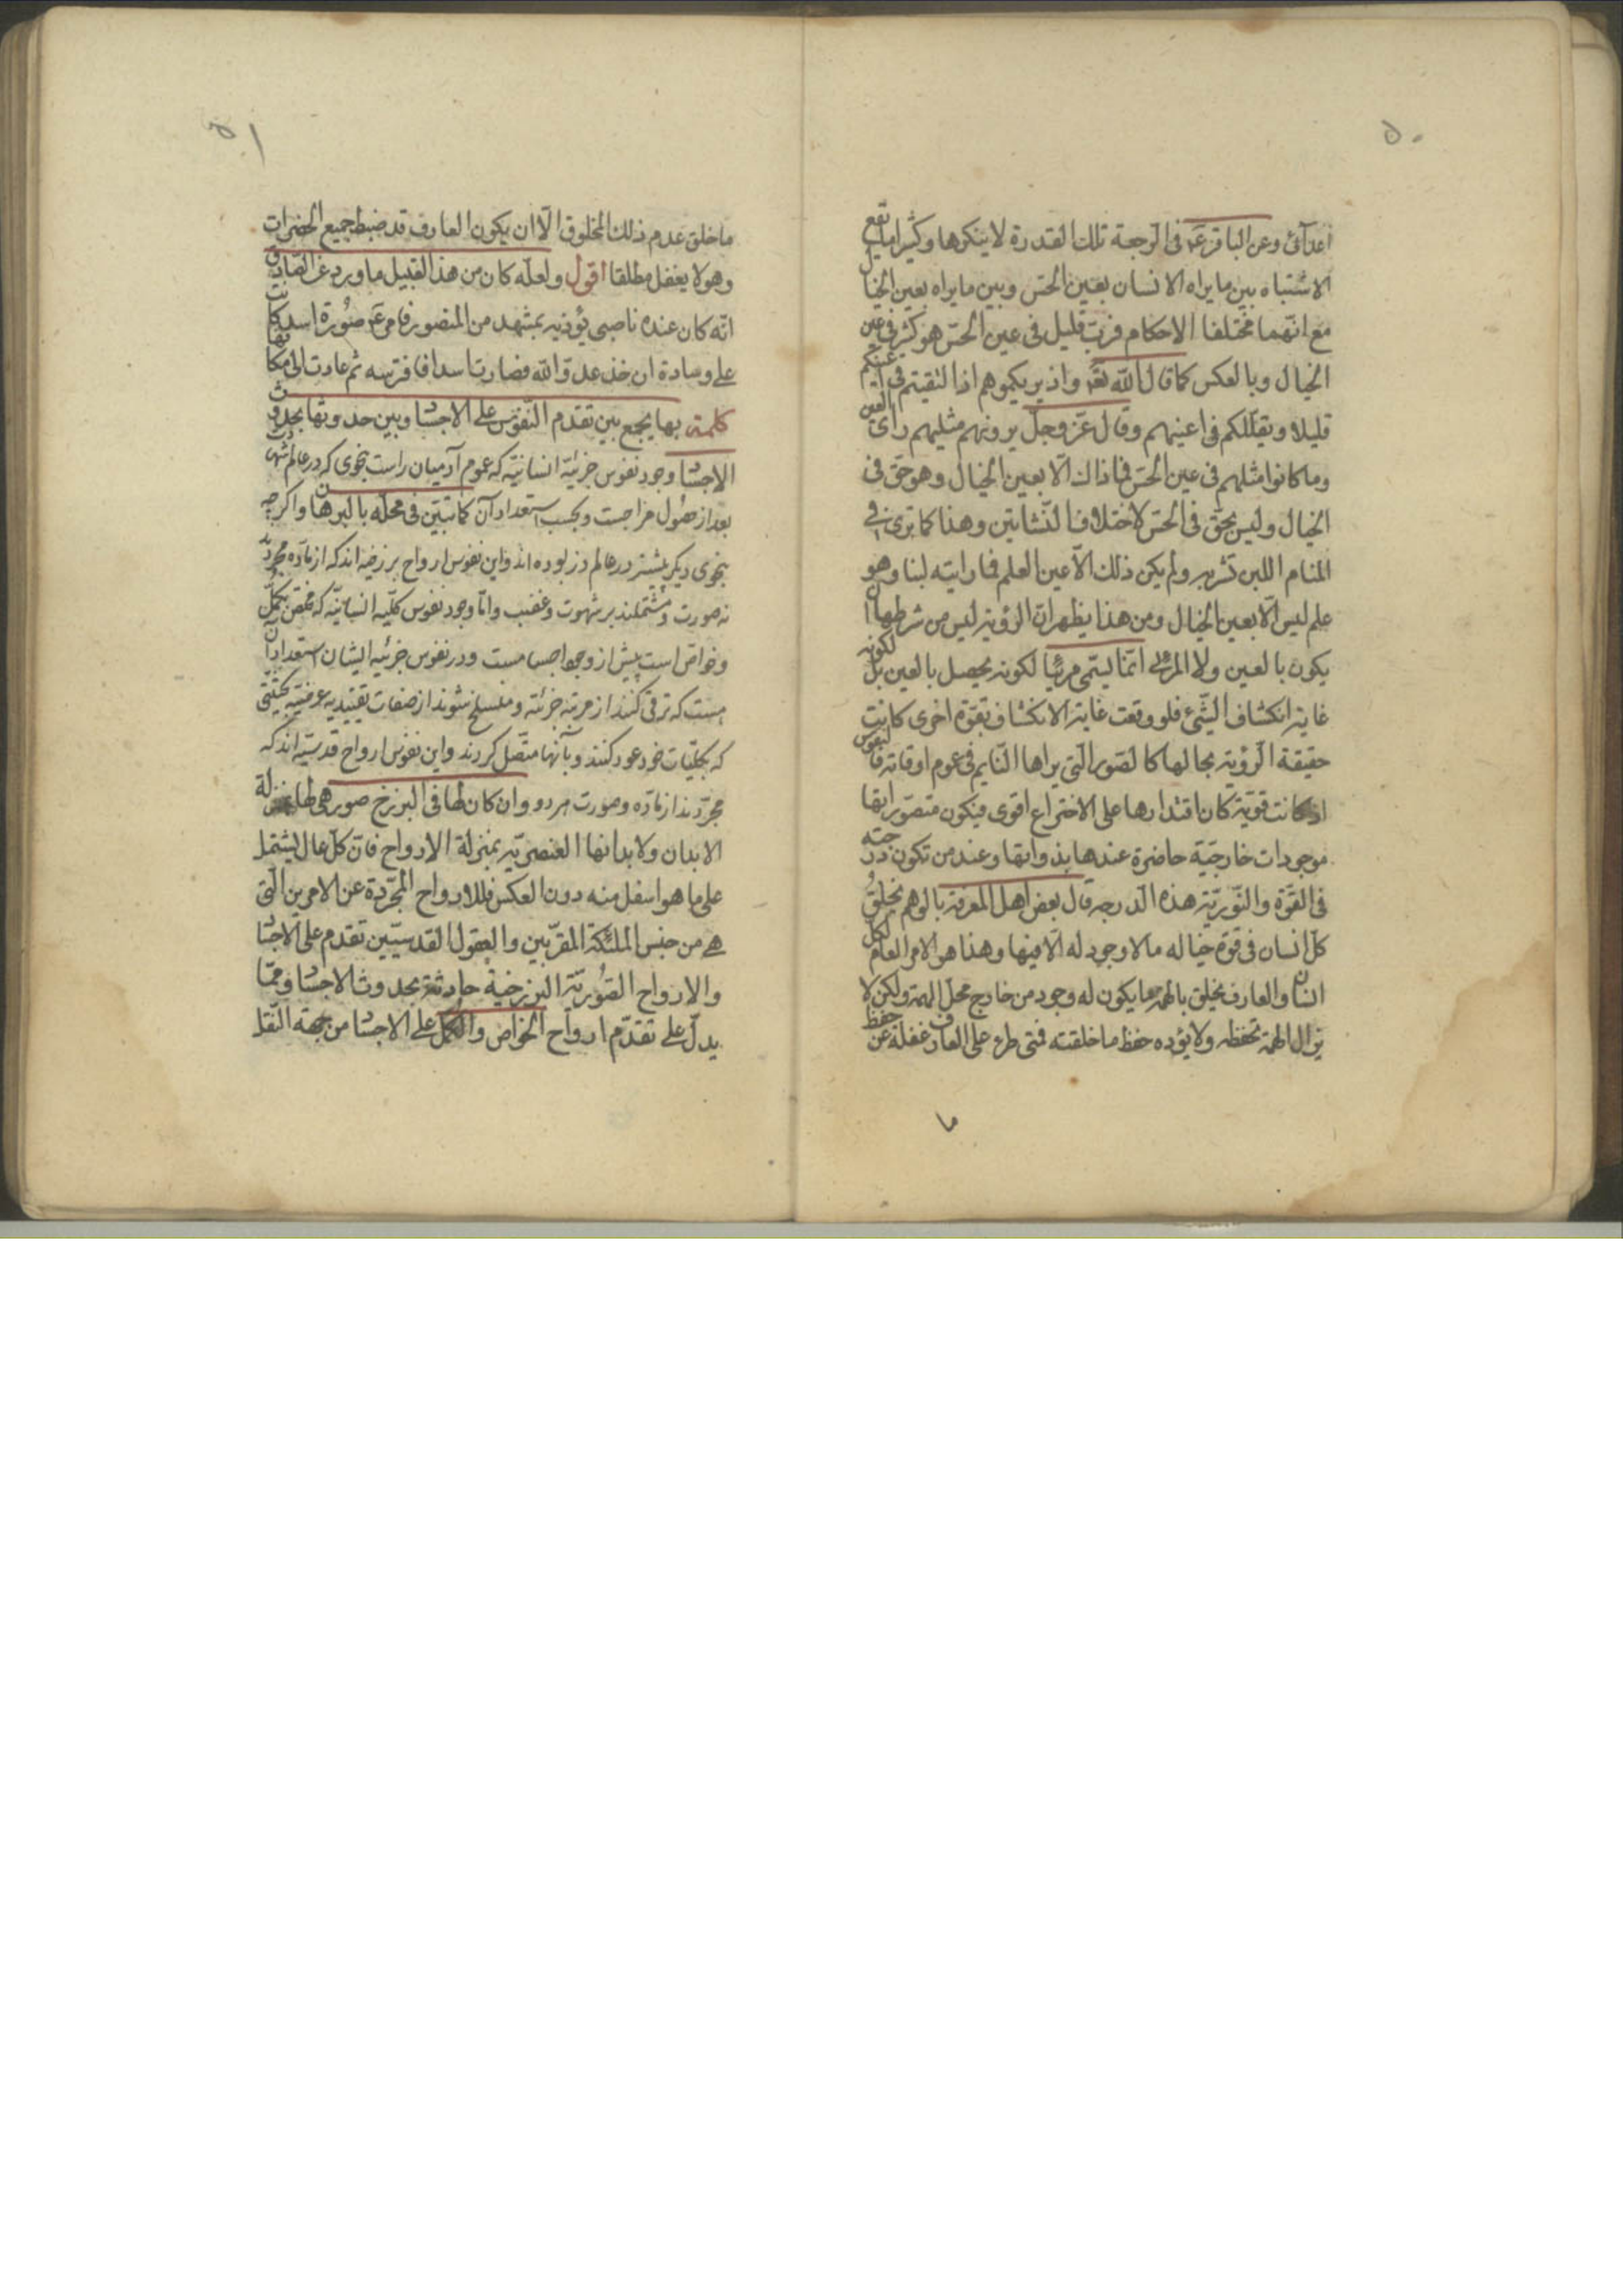 ٥٠
اعدآئى وعن الباقر عۤ فى الرجعة تلك القدرة لا ينكرها وكثيرا ما يقع
الاشتباه بين ما يراه الانسان بعين الحسّ وبين ما يراه بعين الخيال
مع انّهما مختلفا الاحكام فربّ قليل فى عين الحسّ هو كثير فى عين
الخيال وبالعكس كما قال الله تعۤ واذ يريكموهم اذ التقيتم فى اعينكم
قليلا ويقلّلكم فى اعينهم وقال عزّ وجلّ يرونهم مثليهم راى العين
وما كانوا مثليهم فى عين الحسّ فما ذاك الّا بعين الخيال وهو حقّ فى
الخيال وليس بحقّ فى الحسّ لاختلاف النّشاتين وهذا كما ترى فى
المنام اللبن تشربه ولم يكن ذلك الّا عين العلم فما رايته لبنا وهو
علم ليس الّا بعين الخيال ومن هذا يظهر انّ الرؤية ليس من شرطها ان
يكون بالعين ولا المرئى انّما ليسمّى مرئيّا لكونه يحصل بالعين بل لكونه
غاية انكشاف الشّئ فلو وقعت غاية الانكشاف بقوّة اخرى كانت
حقيقة الرؤية بحالها كالصّور التى يراها النّايم فى عموم اوقاته فالنفوس
اذا كانت قويّة كان اقتدارها على الاختراع اقوى فيكون متصوّراتها
موجودات خارجيّة حاضرة عندها بذواتها وعند من تكون درجته
فى القوّة والنّوريّة هذه الدرجه قال بعض اهل المعرفة بالوهم يخلق
كلّ انسان فى قوّة خياله ما لا وجود له الّا فيها وهذا هو الامر العام لكلّ
انسان والعارف يخلق بالهمّة ما يكون له وجود من خارج محلّ الهمّة ولكن لا
تزال الهمّة تحفظه ولا يؤده حفظ ما خلقته فمتى طرء على العارف غفلة عن حفظ
ما
٥١
ما خلق عدم ذلك المخلوق الّا ان يكون العارف قد ضبط جميع الحضرات
وهو لا يغفل مطلقا اقول ولعلّه كان من هذا القبيل ما ورد عن الصّادق
انّه كان عنده ناصبى يؤذيه بمشهد من المنصور فامر عۤ صورة اسد كانت
على وسادة ان خذ عدوّ الله فصارت اسدا فافترسه ثم عادت الى مكانها
كلمة بها يجمع بين تقدم النّفوس على الاجساد وبين حدوثها بحدوث
الاجساد وجود نفوس جزئيّه انسانيّه كه عموم آدميان راست بنحوى كه در عالم شهادت
بعد از حصول مزاجست و بحسب استعداد آن كما تبيّن فى محلّه بالبرهان واگرچه
بنحوى ديگر پيشتر در عالم ذر بوده اند واين نفوس ارواح برزخيه اند كه از مادّه مجرّدند
نه صورت ومشتملند بر شهوت وغضب وامّا وجود نفوس كلّيه انسانيّه كه مختص بكمّل
وخواص است پيش از وجود اجسامست ودر نفوس جزئيه ايشان استعداد آن
هست كه ترقى كنند از مرتبه جزئيّه ومنسلخ شوند از صفات تقييديه عرضيّه بحيثيتى
كه بكلّيات خود عود كنند وبآنها متّصل گردند واين نفوس ارواح قدسيّه اند كه
مجرّدند از مادّه وصورت هر دو وان كان لها فى البرزخ صور هى لها بمنزلة
الابدان ولابدانها العنصريّة بمنزلة الارواح فانّ كلّ عال يشتمل
على ما هو اسفل منه دون العكس فللارواح المجرّدة عن الامرين الّتى
هى من جنس الملئكة المقرّبين والعقول القدسيّين تقدم على الاجساد
والارواح الصّوريّة البرزخية حادثة بحدوث الاجساد وممّا
يدلّ على تقدّم ارواح الخواص والكمّل على الاجساد من جهة النّقل